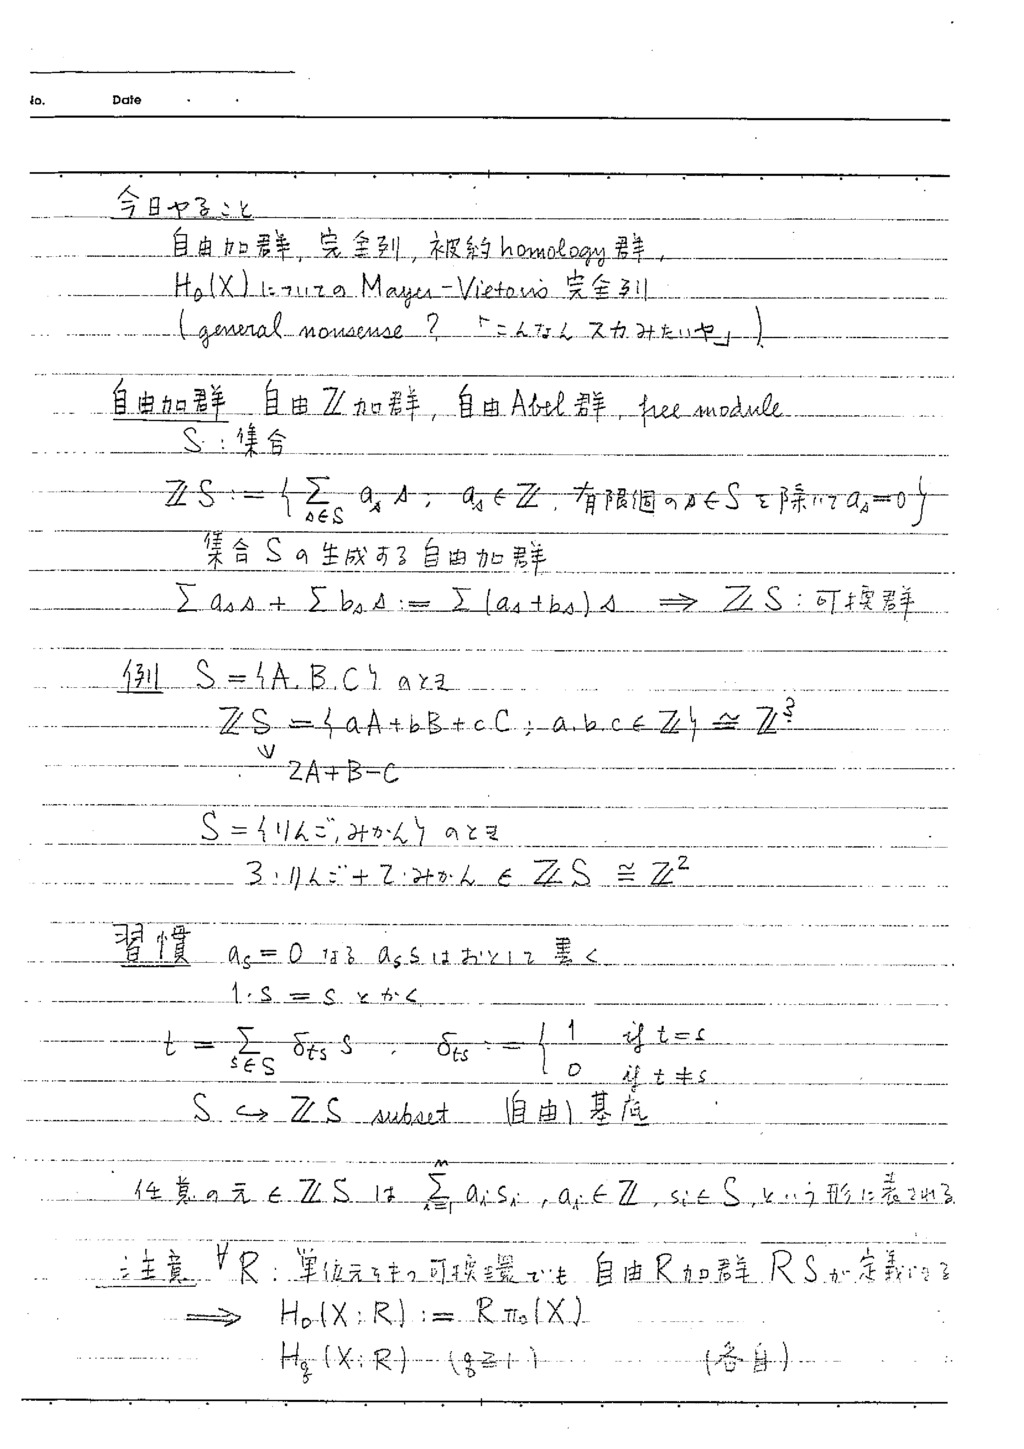 No. Date
今日やること
自由加群, 完全列, 被約homology群,
H₀(X)についての Mayer-Vietoris 完全列
(general nonsense ? 「こんなん スカみたいや」)
自由加群 自由ℤ加群, 自由Abel群, free module
S : 集合
ℤS := { Σ_{s∈S} a_s s ; a_s ∈ ℤ, 有限個のs∈Sを除いてa_s=0 }
集合Sの生成する自由加群
Σ a_s s + Σ b_s s := Σ (a_s+b_s) s ⇒ ℤS : 可換群
例 S = {A, B, C} のとき
ℤS = { aA+bB+cC ; a,b,c ∈ ℤ } ≅ ℤ³
∨
2A+B-C
S = {りんご, みかん} のとき
3·りんご + 2·みかん ∈ ℤS ≅ ℤ²
習慣 a_s = 0 なる a_s s はおとして書く
1·s = s とかく
t = Σ_{s∈S} δ_{ts} s , δ_{ts} := { 1 if t=s
0 if t≠s
S ↪ ℤS subset (自由) 基底
任意の元 ∈ ℤS は Σ_{i=1}^{m} a_i s_i , a_i ∈ ℤ, s_i ∈ S, という形に表される
注意 ∀R : 単位元をもつ可換環でも 自由R加群 RSが定義できる
⇒ H₀(X;R) := Rπ₀(X)
H_q(X;R) (q≧1) (各自)